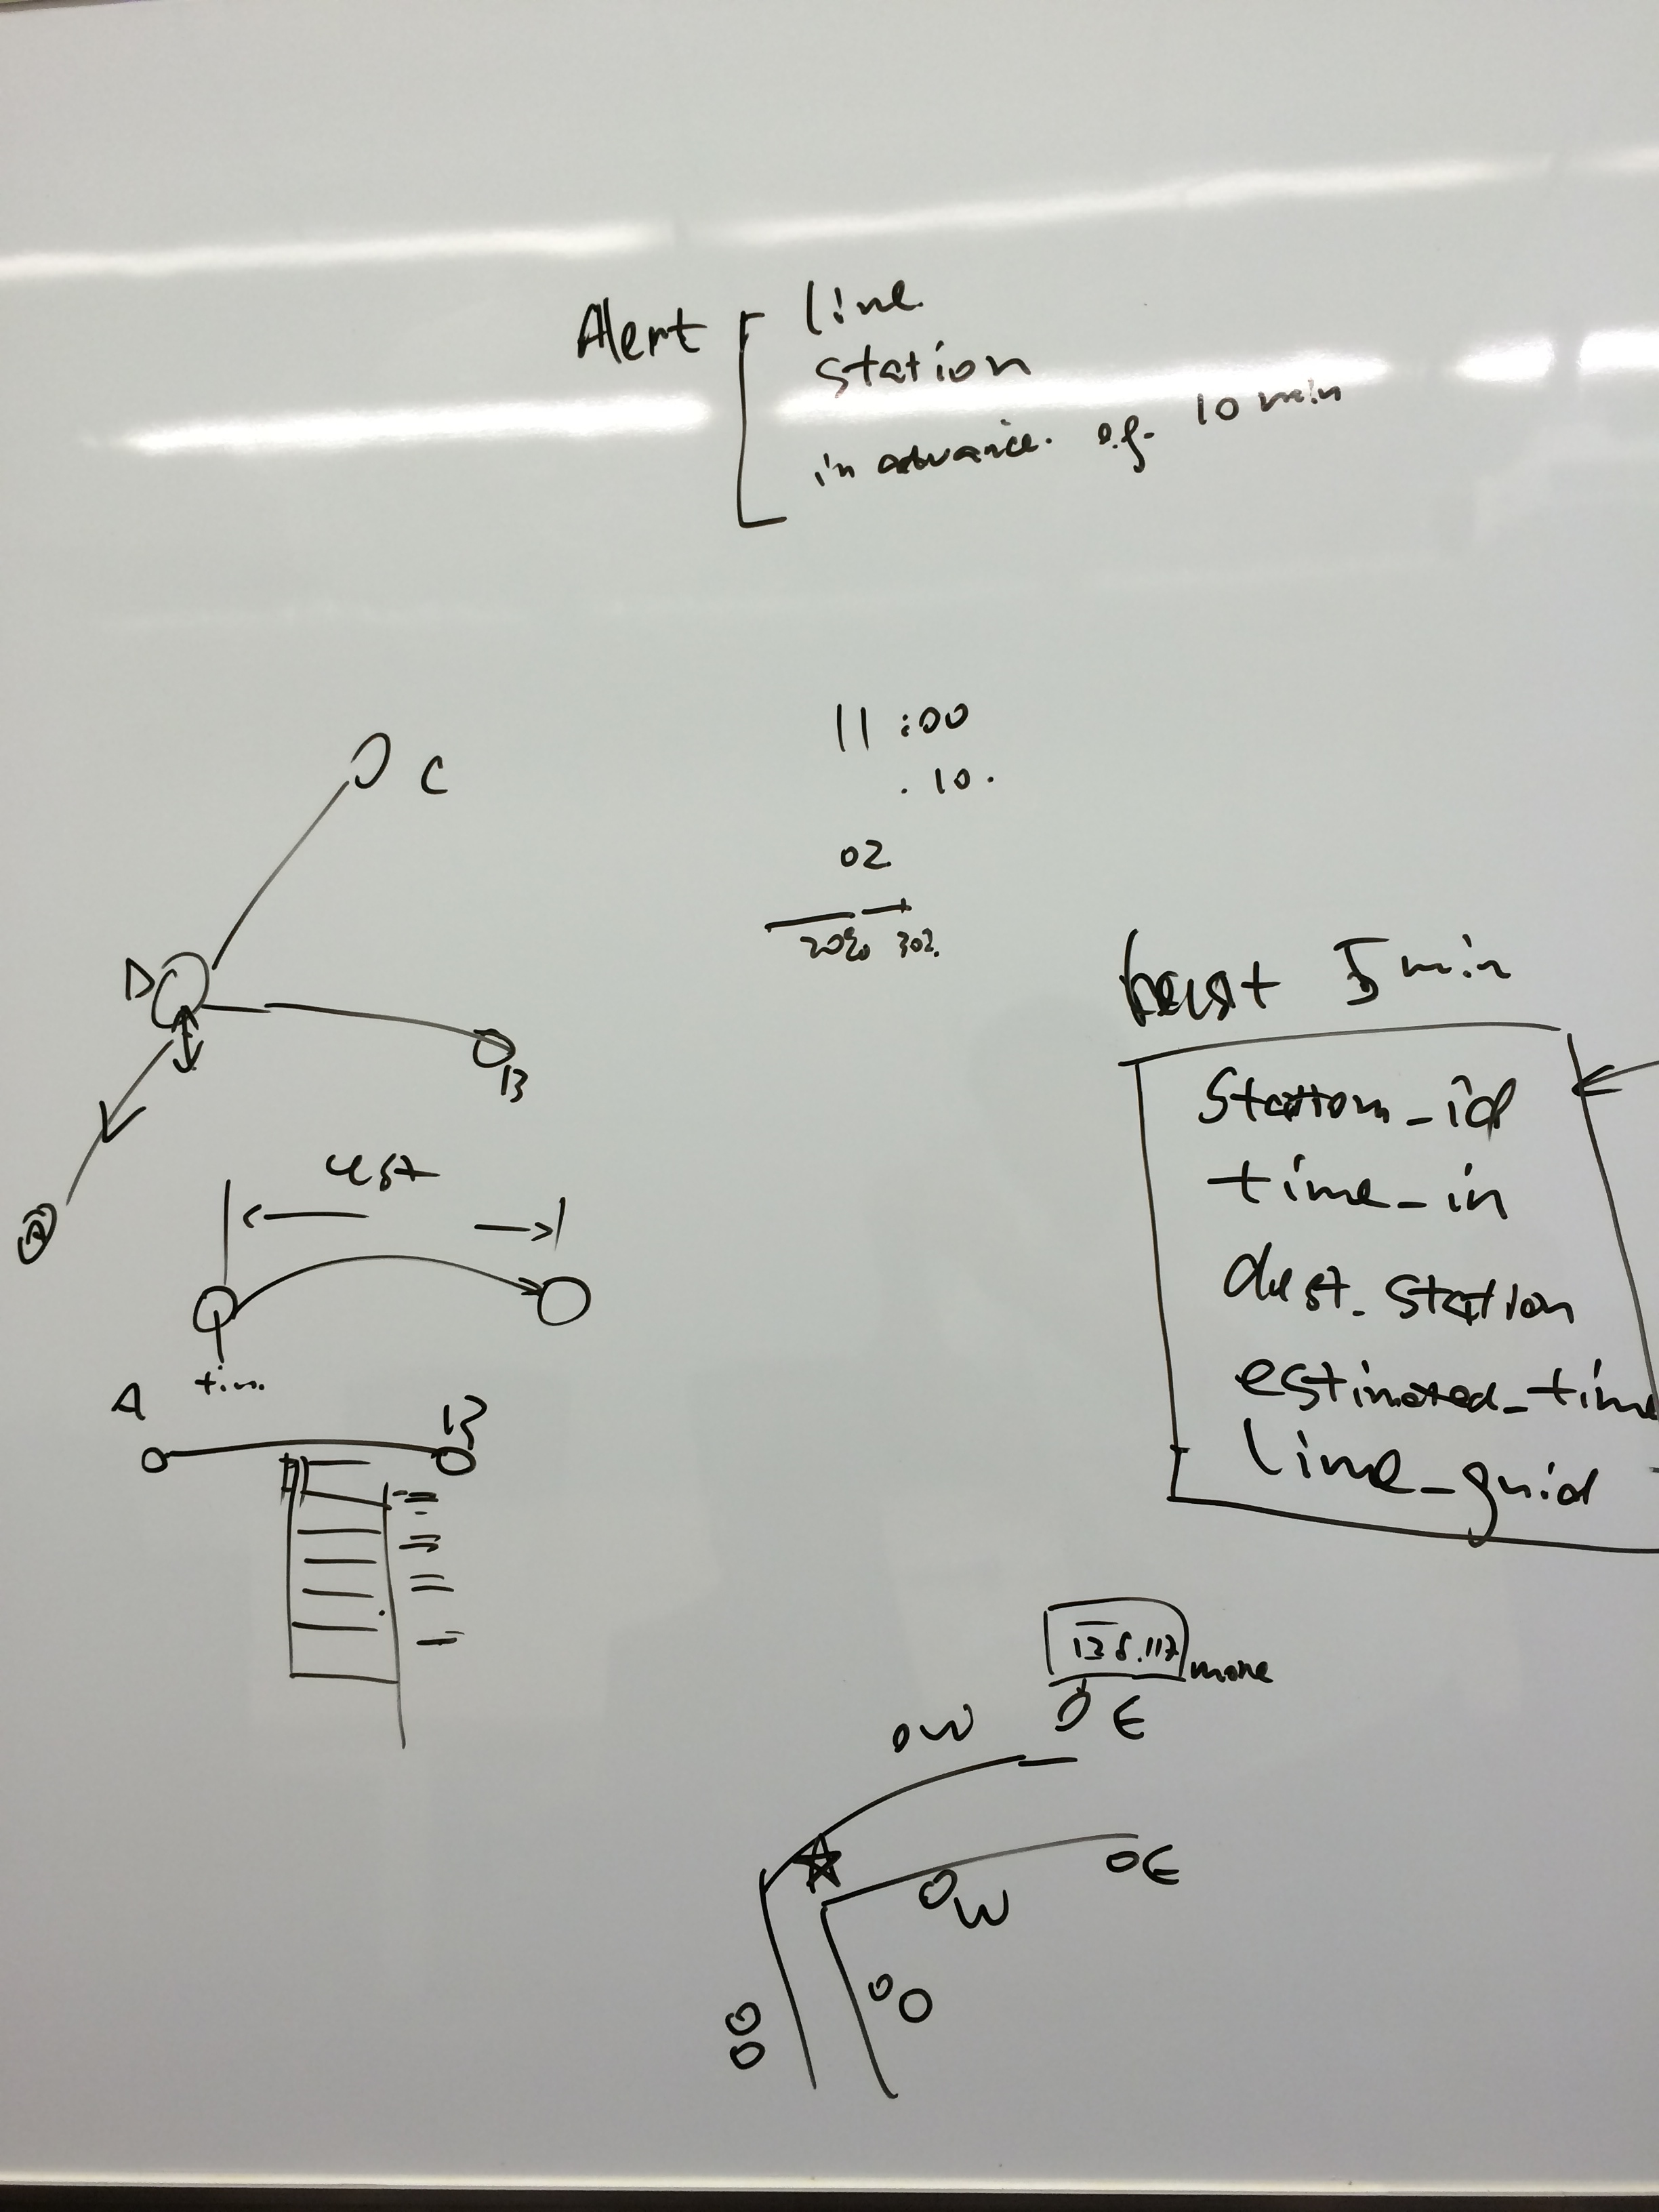 Alert
line
station
in advance. e.g. 10 min
11:00
.10.
02
20% 30%
C
D
B
est
A
B
5 min
Station_id
time_in
dest_station
estimated_time
line_guid
more
W E
W E